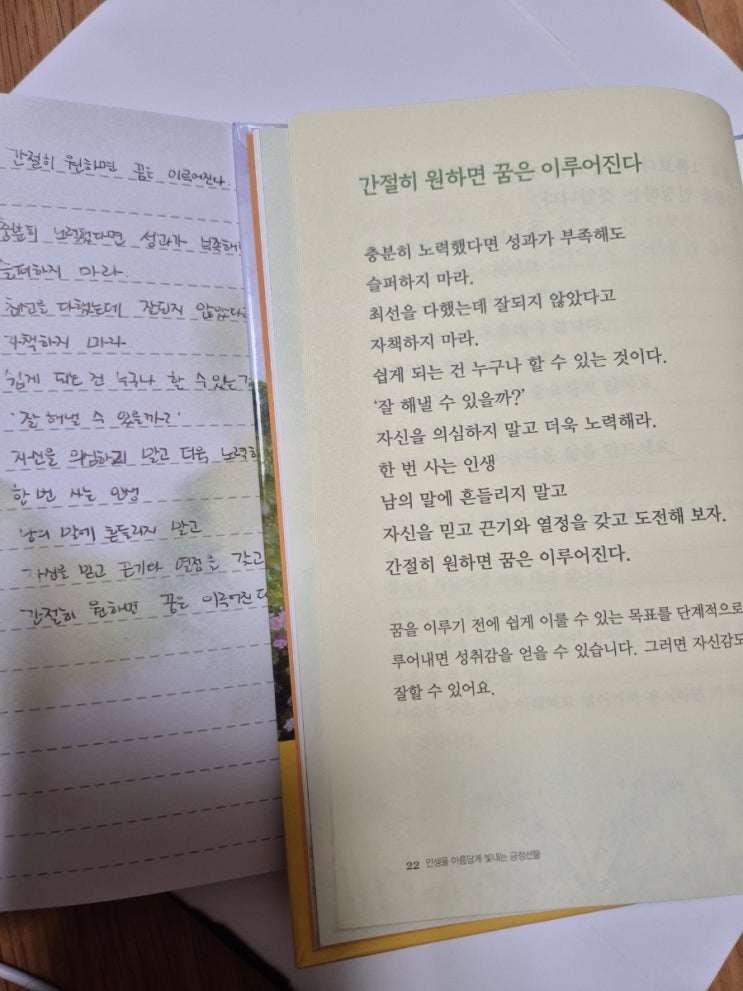 간절히 원하면 꿈은 이루어진다.
충분히 노력했다면 성과가 부족해
슬퍼하지 마라.
최선을 다했는데 잘되지 않았다
자책하지 마라.
쉽게 되는 건 누구나 할 수 있는
'잘 해낼 수 있을까?'
자신을 의심하지 말고 더욱 노력
한 번 사는 인생
남의 말에 흔들리지 말고
자신을 믿고 끈기와 열정을 갖고
간절히 원하면 꿈은 이루어진다
간절히 원하면 꿈은 이루어진다
충분히 노력했다면 성과가 부족해도
슬퍼하지 마라.
최선을 다했는데 잘되지 않았다고
자책하지 마라.
쉽게 되는 건 누구나 할 수 있는 것이다.
'잘 해낼 수 있을까?'
자신을 의심하지 말고 더욱 노력해라.
한 번 사는 인생
남의 말에 흔들리지 말고
자신을 믿고 끈기와 열정을 갖고 도전해 보자.
간절히 원하면 꿈은 이루어진다.
꿈을 이루기 전에 쉽게 이룰 수 있는 목표를 단계적으로
루어내면 성취감을 얻을 수 있습니다. 그러면 자신감도
잘할 수 있어요.
22 인생을 아름답게 빛내는 긍정선물